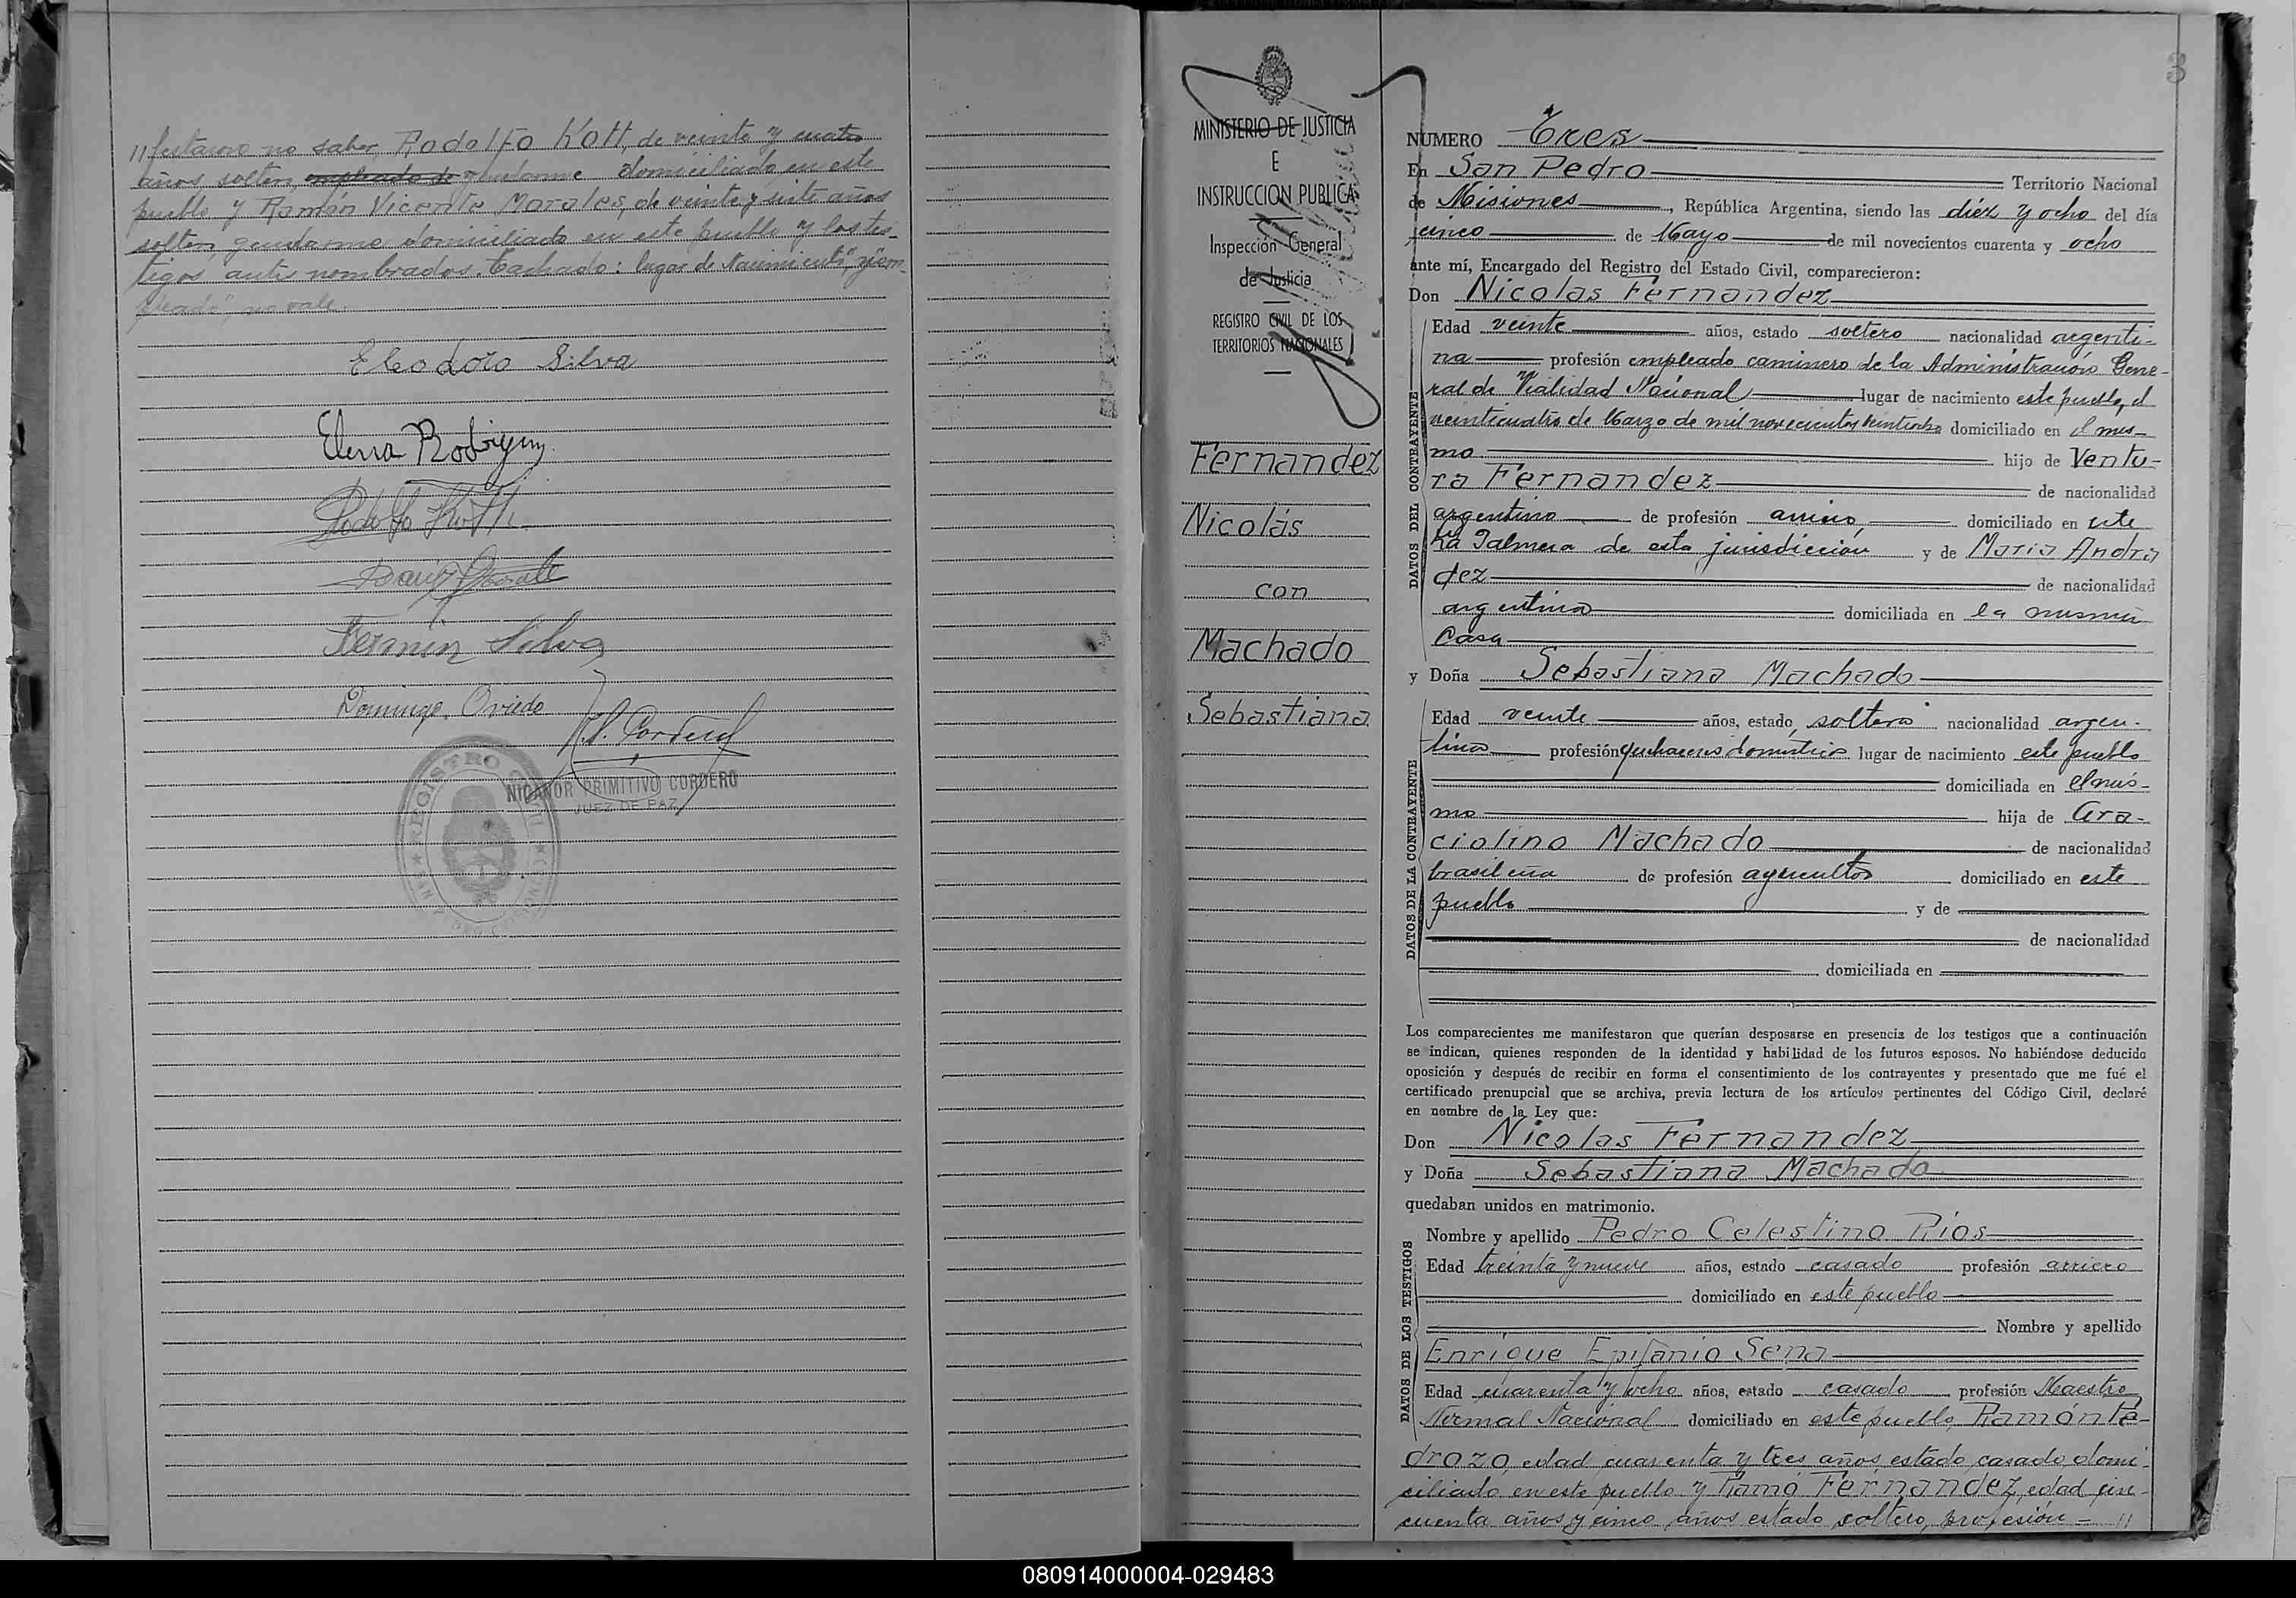 //festaron no saber Rodolfo Kott, de veinte y cuatro
años, soltero, empleado de gendarme domiciliado en este
pueblo y Ramón Vicente Morales, de veinte y siete años
soltero, gendarme domiciliado en este pueblo y los tes-
tigos antes nombrados. Tachado: lugar de Nacimiento", y "em-
pleado", no vale.
Eleodoro Silva
Elena
Fermin Silva
Domingo Oviedo
NICANOR PRIMITIVO CORDERO
JUEZ DE PAZ
REGISTRO
MINISTERIO DE JUSTICIA
E
INSTRUCCION PUBLICA
Inspección General
de Justicia
REGISTRO CIVIL DE LOS
TERRITORIOS NACIONALES
Fernandez
Nicolás
con
Machado
Sebastiana
3
NUMERO Tres
En San Pedro Territorio Nacional
de Misiones, República Argentina, siendo las diez y ocho del día
cinco de Mayo de mil novecientos cuarenta y ocho
ante mí, Encargado del Registro del Estado Civil, comparecieron:
Don Nicolas Fernandez
DATOS DEL CONTRAYENTE
Edad veinte años, estado soltero nacionalidad argenti-
na profesión empleado caminero de la Administración Gene-
ral de Vialidad Nacional lugar de nacimiento este pueblo, el
veinticuatro de Marzo de mil novecientos veintiocho domiciliado en el mis-
mo hijo de Ventu-
ra Fernandez de nacionalidad
argentino de profesión domiciliado en este
La Palmera de esta jurisdicción y de Maria Andra
dez de nacionalidad
argentina domiciliada en la misma
Casa
y Doña Sebastiana Machado
DATOS DE LA CONTRAYENTE
Edad veinte años, estado soltera nacionalidad argen-
tina profesión quehaceres domésticos lugar de nacimiento este pueblo
domiciliada en el mis-
mo hija de Gra-
ciolino Machado de nacionalidad
brasileña de profesión agricultor domiciliado en este
pueblo y de
de nacionalidad
domiciliada en
Los comparecientes me manifestaron que querían desposarse en presencia de los testigos que a continuación
se indican, quienes responden de la identidad y habilidad de los futuros esposos. No habiéndose deducido
oposición y después de recibir en forma el consentimiento de los contrayentes y presentado que me fué el
certificado prenupcial que se archiva, previa lectura de los artículos pertinentes del Código Civil, declaré
en nombre de la Ley que:
Don Nicolas Fernandez
y Doña Sebastiana Machado
quedaban unidos en matrimonio.
DATOS DE LOS TESTIGOS
Nombre y apellido Pedro Celestino Rios
Edad treinta y nueve años, estado casado profesión arriero
domiciliado en este pueblo
Nombre y apellido
Enrique Epifanio Sena
Edad cuarenta y ocho años, estado casado profesión Maestro
Normal Nacional domiciliado en este pueblo, Ramón Pe-
drozo, edad cuarenta y tres años estado casado, domi-
ciliado en este pueblo y Ramó Fernandez, edad cin-
cuenta años y cinco años estado soltero, profesión - //
080914000004-029483